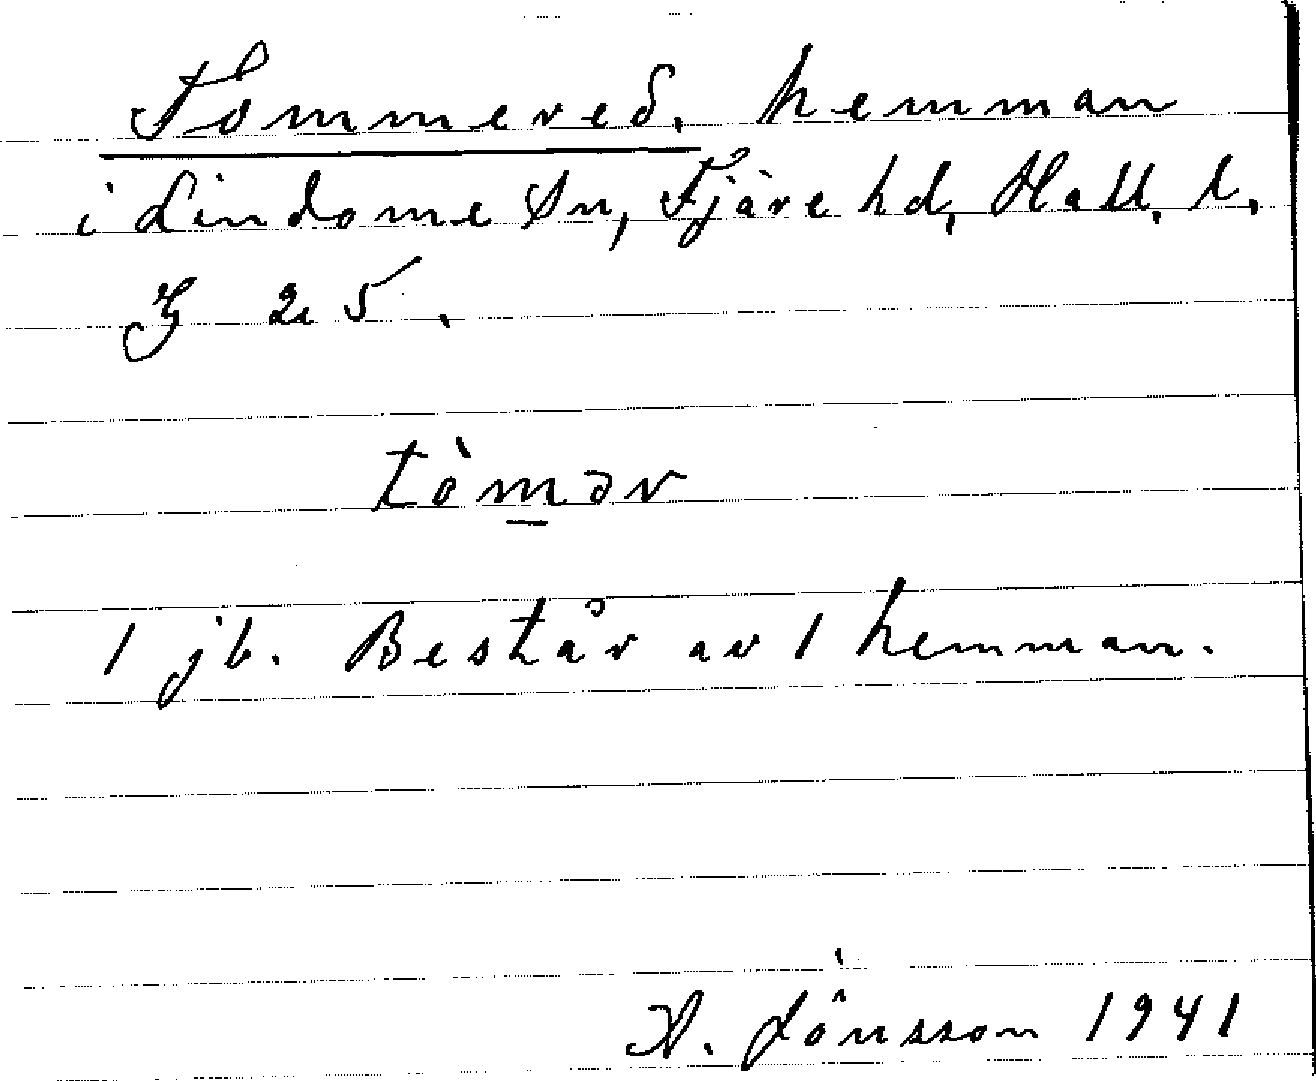 Tommered. hemman
i Lindome Sn, Fjäre hd, Hall. l.
G 25.
tòmər
1 jb. Består av 1 hemman.
A. Jönsson 1941